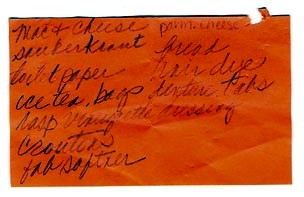 mac & cheese
parm. cheese
sauerkraut
bread
toilet paper
hair dye
ice tea bags
denture tabs
rasp vinegrette dressing
croutons
fab softner